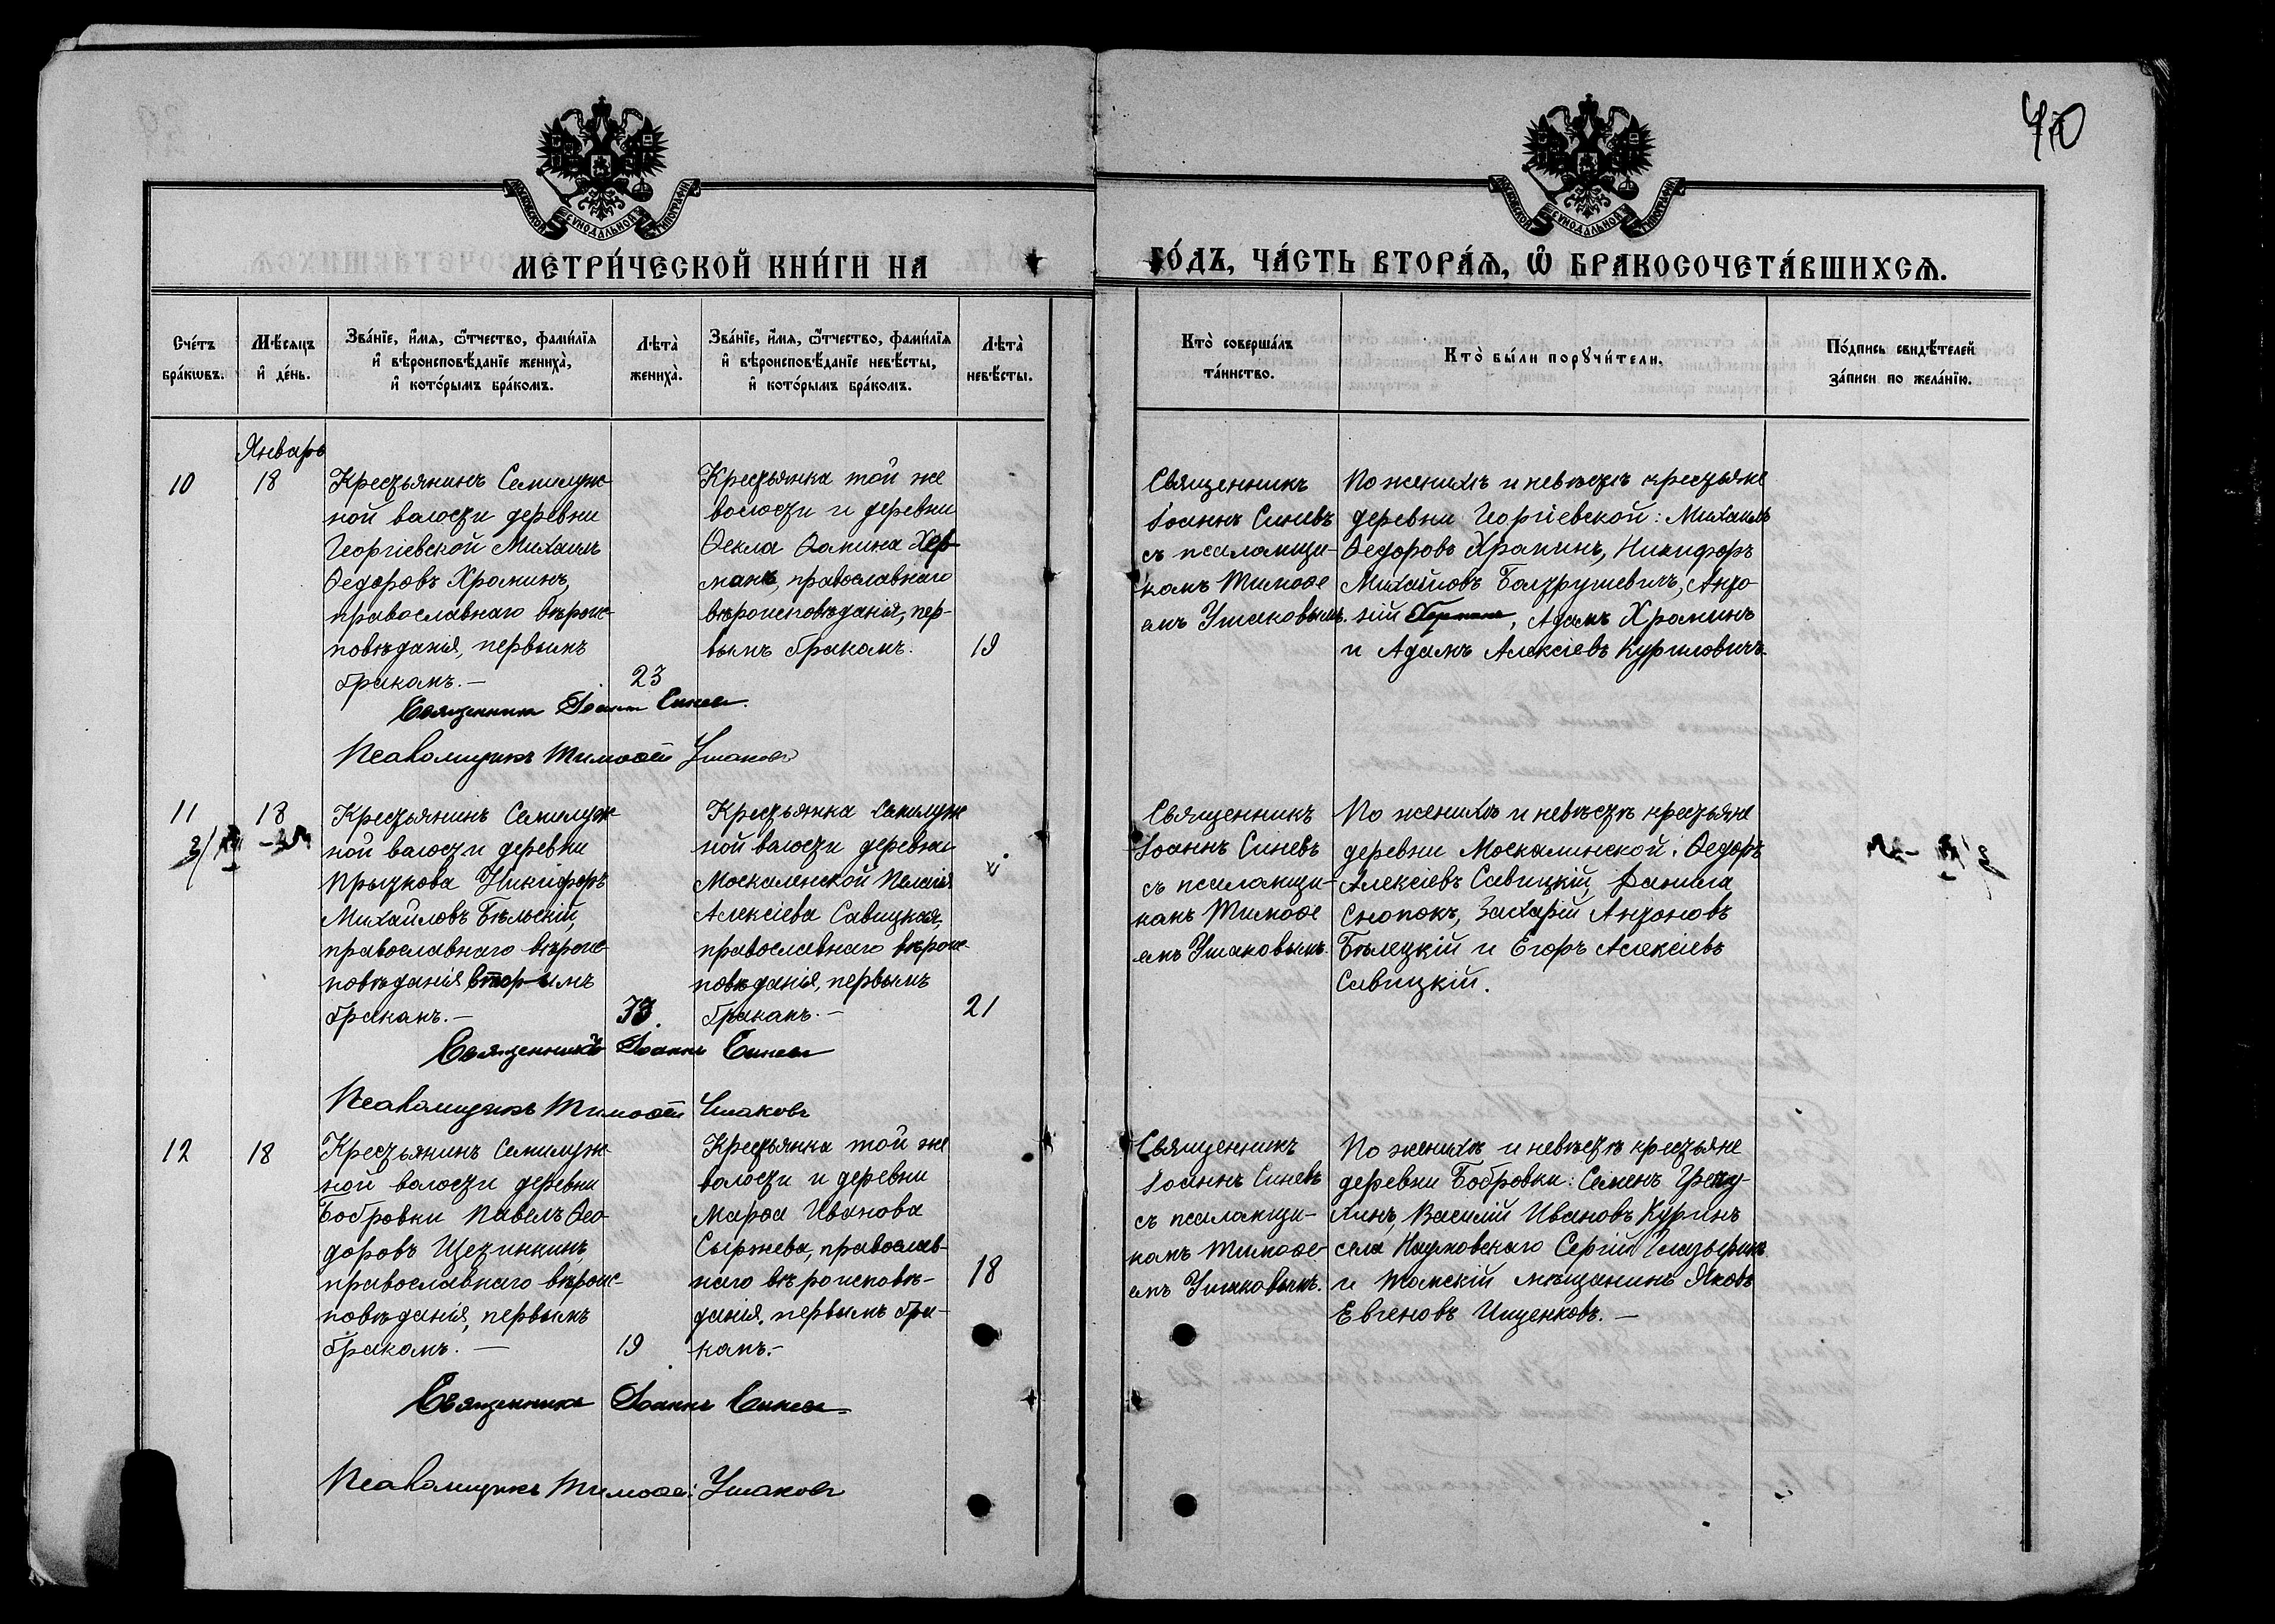 40
МОСКОВСКОЙ СѴНОДАЛЬНОЙ ТИПОГРАФІИ
МОСКОВСКОЙ СѴНОДАЛЬНОЙ ТИПОГРАФІИ
МЕТРИ́ЧЕСКОЙ КНИ́ГИ НА
ГО́ДЪ, ЧА́СТЬ ВТОРА́Ѧ, Ѡ҆ БРАКОСОЧЕТА́ВШИХСѦ.
Сче́тъ
бра́кѡвъ.
Мѣ́сяцъ
и҆ де́нь.
Зва́нїе, и҆́мѧ, ѻ҆́тчество, фами́лїѧ
и҆ вѣроисповѣ́данїе жениха̀,
и҆ кото́рымъ бра́комъ.
Лѣта̀
жениха̀.
Зва́нїе, и҆́мѧ, ѻ҆́тчество, фами́лїѧ
и҆ вѣроисповѣ́данїе невѣ́сты,
и҆ кото́рымъ бра́комъ.
Лѣта̀
невѣ́сты.
Кто̀ соверша́лъ
та́инство.
Кто̀ бы́ли порꙋчи́тели.
По́дпись свидѣ́телей
за́писи по жела́нїю.
Январь
10
18
Крестьянинъ Семилуж-
ной волости деревни
Георгіевской Михаилъ
Ѳедоровъ Хроминъ,
православнаго вѣроис-
повѣданія, первымъ
бракомъ. —
23
Крестьянка той же
волости и деревни
Ѳекла Ѳомина Хер-
манъ, православнаго
вѣроисповѣданія, пер-
вымъ бракомъ.
19
Священникъ
Іоаннъ Синевъ
съ псаломщи-
комъ Тимоѳе
емъ Ушаковымъ.
По женихѣ и невѣстѣ крестьяне
деревни Георгіевской: Михаилъ
Ѳедоровъ Храпинъ, Никифоръ
Михайловъ Болтрушевичъ, Анто
ній, Адамъ Хроминъ
и Адамъ Алексіевъ Куриловичъ.
Священникъ Іоаннъ Синевъ
Псаломщикъ Тимоѳей Ушаковъ
11
18
Крестьянинъ Семилуж-
ной волости деревни
Прыткова Никифоръ
Михайловъ Бѣльскій,
православнаго вѣроис-
повѣданія вторымъ
бракомъ. —
Крестьянка Семилуж
ной волости деревни
Москалинской Пелагія
Алексіева Савицкая,
православнаго вѣроис-
повѣданія, первымъ
бракомъ. —
21
Священникъ
Іоаннъ Синевъ
съ псаломщи-
комъ Тимоѳе
емъ Ушаковымъ.
По женихѣ и невѣстѣ крестьяне
деревни Москалинской: Ѳедоръ
Алексіевъ Савицкій, Данила
Снопокъ, Захарій Антоновъ
Бѣлецкій и Егоръ Алексіевъ
Савицкій.
Священникъ Іоаннъ Синевъ
Псаломщикъ Тимоѳей Ушаковъ
12
18
Крестьянинъ Семилуж-
ной волости деревни
Бобровки Павелъ Ѳео-
доровъ Щетинкинъ,
православнаго вѣроис-
повѣданія, первымъ
бракомъ. —
19
Крестьянка той же
волости и деревни
Марѳа Иванова
Сыржева, православ-
наго вѣроисповѣ-
данія, первымъ бра-
комъ. —
18
Священникъ
Іоаннъ Синевъ
съ псаломщи-
комъ Тимоѳе-
емъ Ушаковымъ.
По женихѣ и невѣстѣ крестьяне
деревни Бобровки: Семенъ
Василій Ивановъ Куринъ
села Наумовскаго Сергій Глазыринъ
и Томскій мѣщанинъ Яковъ
Евгеновъ Ищенковъ. —
Священникъ Іоаннъ Синевъ
Псаломщикъ Тимоѳей Ушаковъ